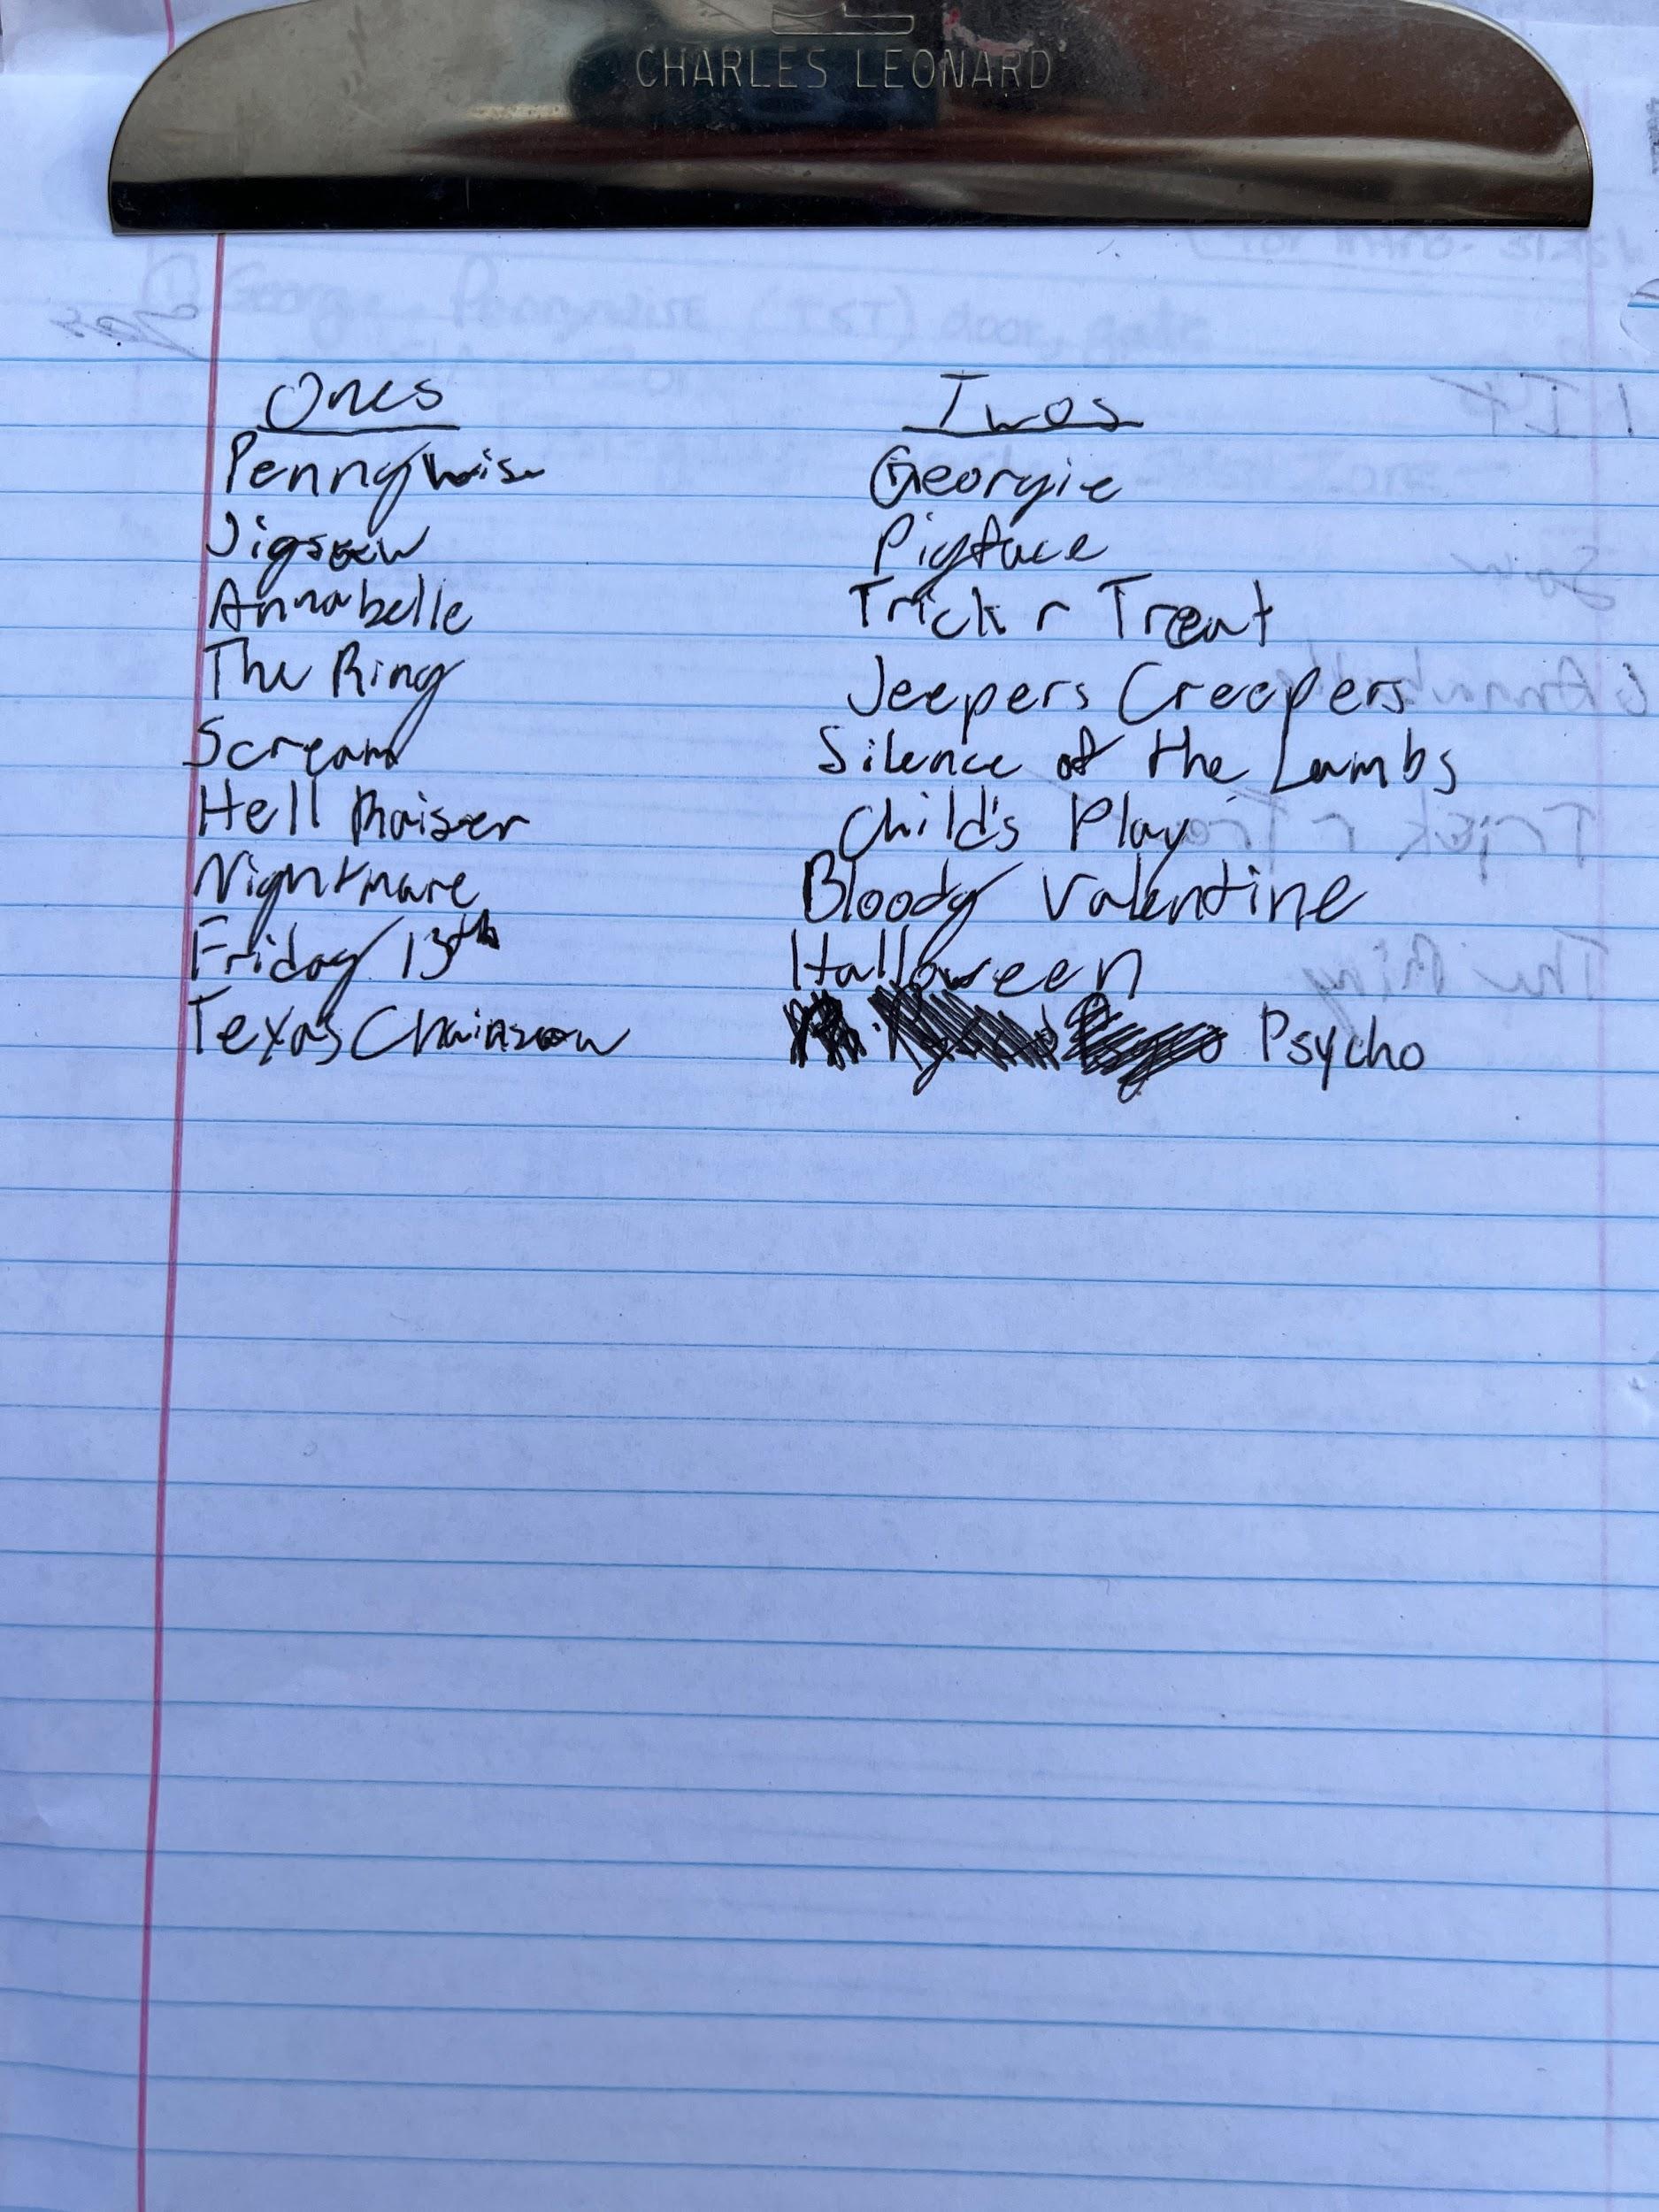 CHARLES LEONARD
Ones Twos
Pennywise Georgie
Jigsaw Pigface
Annabelle Trick r Treat
The Ring Jeepers Creepers
Scream Silence of the Lambs
Hell Raiser Child's Play
Nightmare Bloody Valentine
Friday 13th Halloween
Texas Chainsaw Psycho